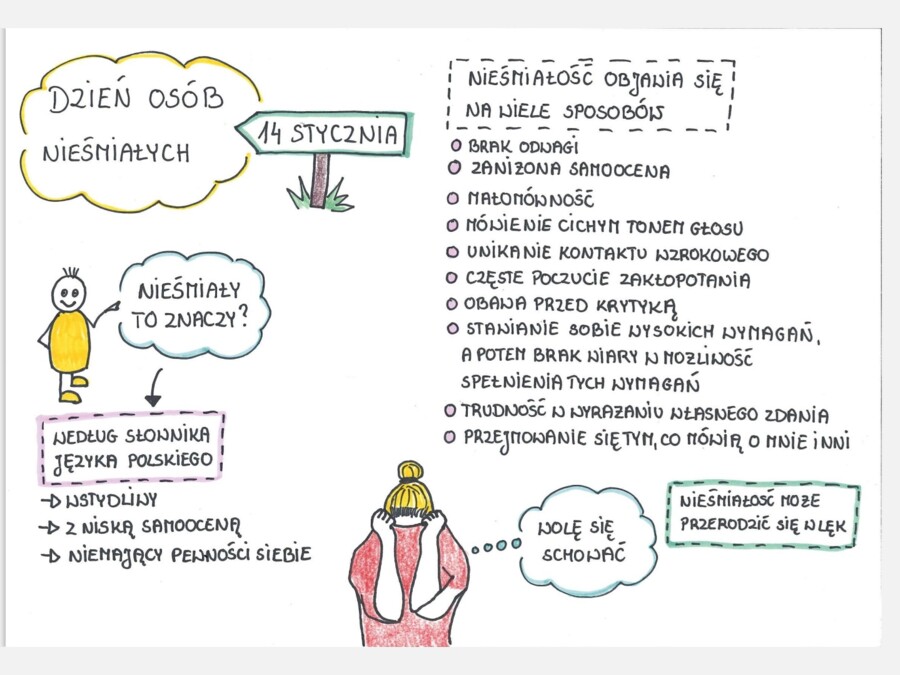 DZIEŃ OSÓB
NIEŚMIAŁYCH
14 STYCZNIA
NIEŚMIAŁY
TO ZNACZY?
WEDŁUG SŁOWNIKA
JĘZYKA POLSKIEGO
→ WSTYDLIWY
→ Z NISKĄ SAMOOCENĄ
→ NIEMAJĄCY PEWNOŚCI SIEBIE
NIEŚMIAŁOŚĆ OBJAWIA SIĘ
NA WIELE SPOSOBÓW
BRAK ODWAGI
ZANIŻONA SAMOOCENA
MAŁOMÓWNOŚĆ
MÓWIENIE CICHYM TONEM GŁOSU
UNIKANIE KONTAKTU WZROKOWEGO
CZĘSTE POCZUCIE ZAKŁOPOTANIA
OBAWA PRZED KRYTYKĄ
STAWIANIE SOBIE WYSOKICH WYMAGAŃ,
A POTEM BRAK WIARY W MOŻLIWOŚĆ
SPEŁNIENIA TYCH WYMAGAŃ
TRUDNOŚĆ W WYRAŻANIU WŁASNEGO ZDANIA
PRZEJMOWANIE SIĘ TYM, CO MÓWIĄ O MNIE INNI
WOLĘ SIĘ
SCHOWAĆ
NIEŚMIAŁOŚĆ MOŻE
PRZERODZIĆ SIĘ W LĘK